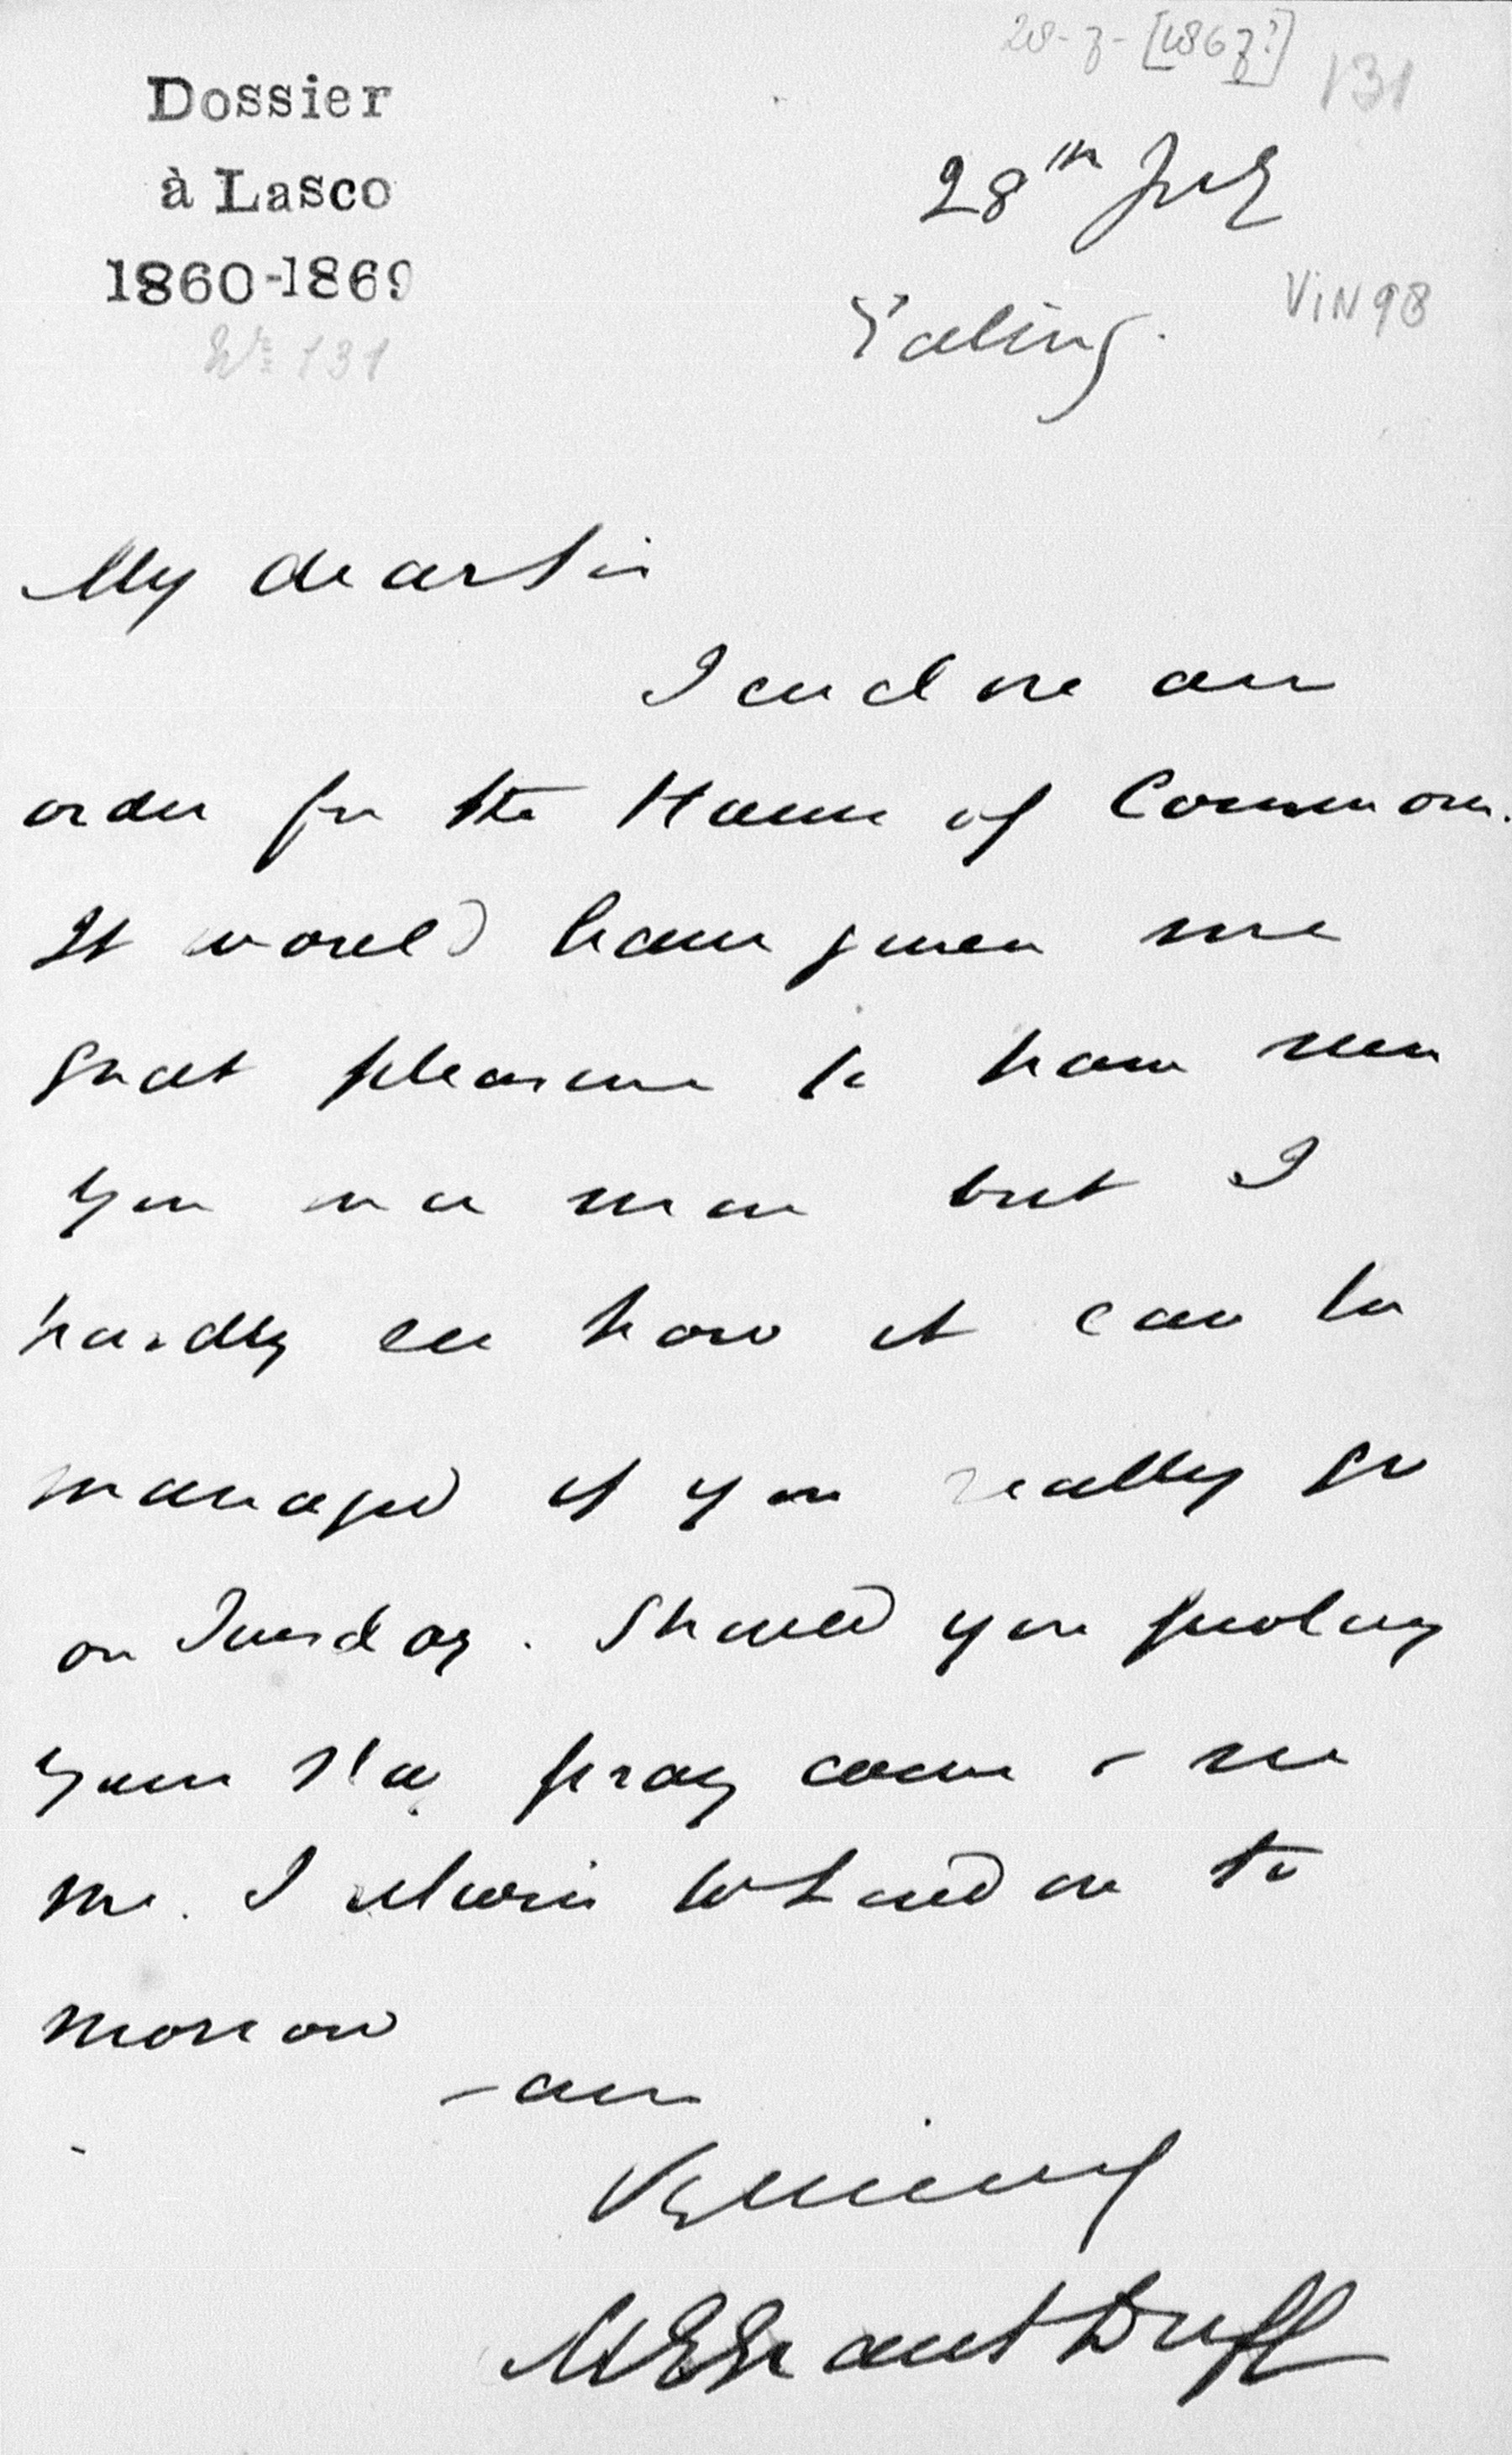 28-7-[1867?] 131
Dossier
à Lasco
1860-1869
No 131
28th July
Ealing.
VIN 98
My dear Sir
I enclose an
order for the House of Commons.
It would have given me
great pleasure to have seen
you once more but I
hardly see how it can be
managed if you really go
on Tuesday. Should you prolong
your stay pray come & see
me. I return to London to
morrow
- am
Vy sincerely
M E Grant Duff